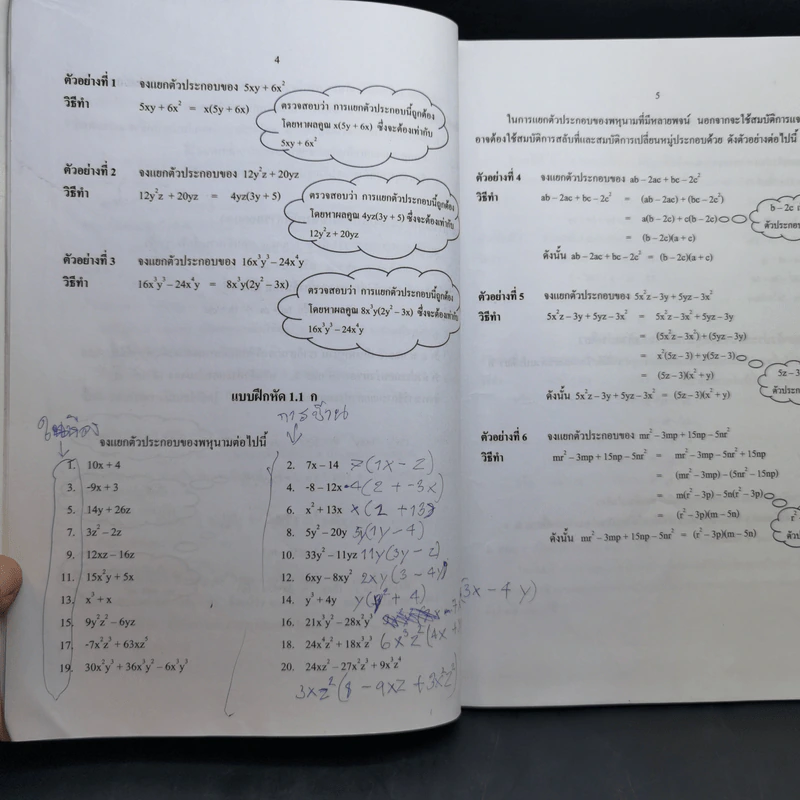 4
ตัวอย่างที่ 1 จงแยกตัวประกอบของ 5xy + 6x²
วิธีทำ 5xy + 6x² = x(5y + 6x)
ตรวจสอบว่า การแยกตัวประกอบนี้ถูกต้อง
โดยหาผลคูณ x(5y + 6x) ซึ่งจะต้องเท่ากับ
5xy + 6x²
ตัวอย่างที่ 2 จงแยกตัวประกอบของ 12y²z + 20yz
วิธีทำ 12y²z + 20yz = 4yz(3y + 5)
ตรวจสอบว่า การแยกตัวประกอบนี้ถูกต้อง
โดยหาผลคูณ 4yz(3y + 5) ซึ่งจะต้องเท่ากับ
12y²z + 20yz
ตัวอย่างที่ 3 จงแยกตัวประกอบของ 16x³y³ – 24x⁴y
วิธีทำ 16x³y³ – 24x⁴y = 8x³y(2y² – 3x)
ตรวจสอบว่า การแยกตัวประกอบนี้ถูกต้อง
โดยหาผลคูณ 8x³y(2y² – 3x) ซึ่งจะต้องเท่ากับ
16x³y³ – 24x⁴y
แบบฝึกหัด 1.1 ก
การบ้าน
จงแยกตัวประกอบของพหุนามต่อไปนี้
1. 10x + 4
2. 7x – 14 7(1x – 2)
3. -9x + 3
4. -8 – 12x -4(2 + -3x)
5. 14y + 26z
6. x² + 13x
7. 3z² – 2z
8. 5y² – 20y 5y(1y – 4)
9. 12xz – 16z
10. 33y² – 11yz 11y(3y – z)
11. 15x²y + 5x
12. 6xy – 8xy² 2xy(3 – 4y)
13. x³ + x
14. y³ + 4y y(y² + 4)
15. 9y²z² – 6yz
16. 21x³y² – 28x²y³ (3x – 4y)
17. -7x²z³ + 63xz⁵
18. 24x⁴z² + 18x³z³ 6x³z²(4x +
19. 30x²y³ + 36x³y² – 6x³y³
20. 24xz² – 27x²z³ + 9x³z⁴
3xz²(8 – 9xz + 3x²z²)
5
ในการแยกตัวประกอบของพหุนามที่มีหลายพจน์ นอกจากจะใช้สมบัติการแจ
อาจต้องใช้สมบัติการสลับที่และสมบัติการเปลี่ยนหมู่ประกอบด้วย ดังตัวอย่างต่อไปนี้
ตัวอย่างที่ 4 จงแยกตัวประกอบของ ab – 2ac + bc – 2c²
วิธีทำ ab – 2ac + bc – 2c² = (ab – 2ac) + (bc – 2c²)
= a(b – 2c) + c(b – 2c)
= (b – 2c)(a + c)
b – 2c
ตัวประกอบ
ดังนั้น ab – 2ac + bc – 2c² = (b – 2c)(a + c)
ตัวอย่างที่ 5 จงแยกตัวประกอบของ 5x²z – 3y + 5yz – 3x²
วิธีทำ 5x²z – 3y + 5yz – 3x² = 5x²z – 3x² + 5yz – 3y
= (5x²z – 3x²) + (5yz – 3y)
= x²(5z – 3) + y(5z – 3)
= (5z – 3)(x² + y)
5z – 3
ตัวประก
ดังนั้น 5x²z – 3y + 5yz – 3x² = (5z – 3)(x² + y)
ตัวอย่างที่ 6 จงแยกตัวประกอบของ mr² – 3mp + 15np – 5nr²
วิธีทำ mr² – 3mp + 15np – 5nr² = mr² – 3mp – 5nr² + 15np
= (mr² – 3mp) – (5nr² – 15np)
= m(r² – 3p) – 5n(r² – 3p)
= (r² – 3p)(m – 5n)
ดังนั้น mr² – 3mp + 15np – 5nr² = (r² – 3p)(m – 5n)